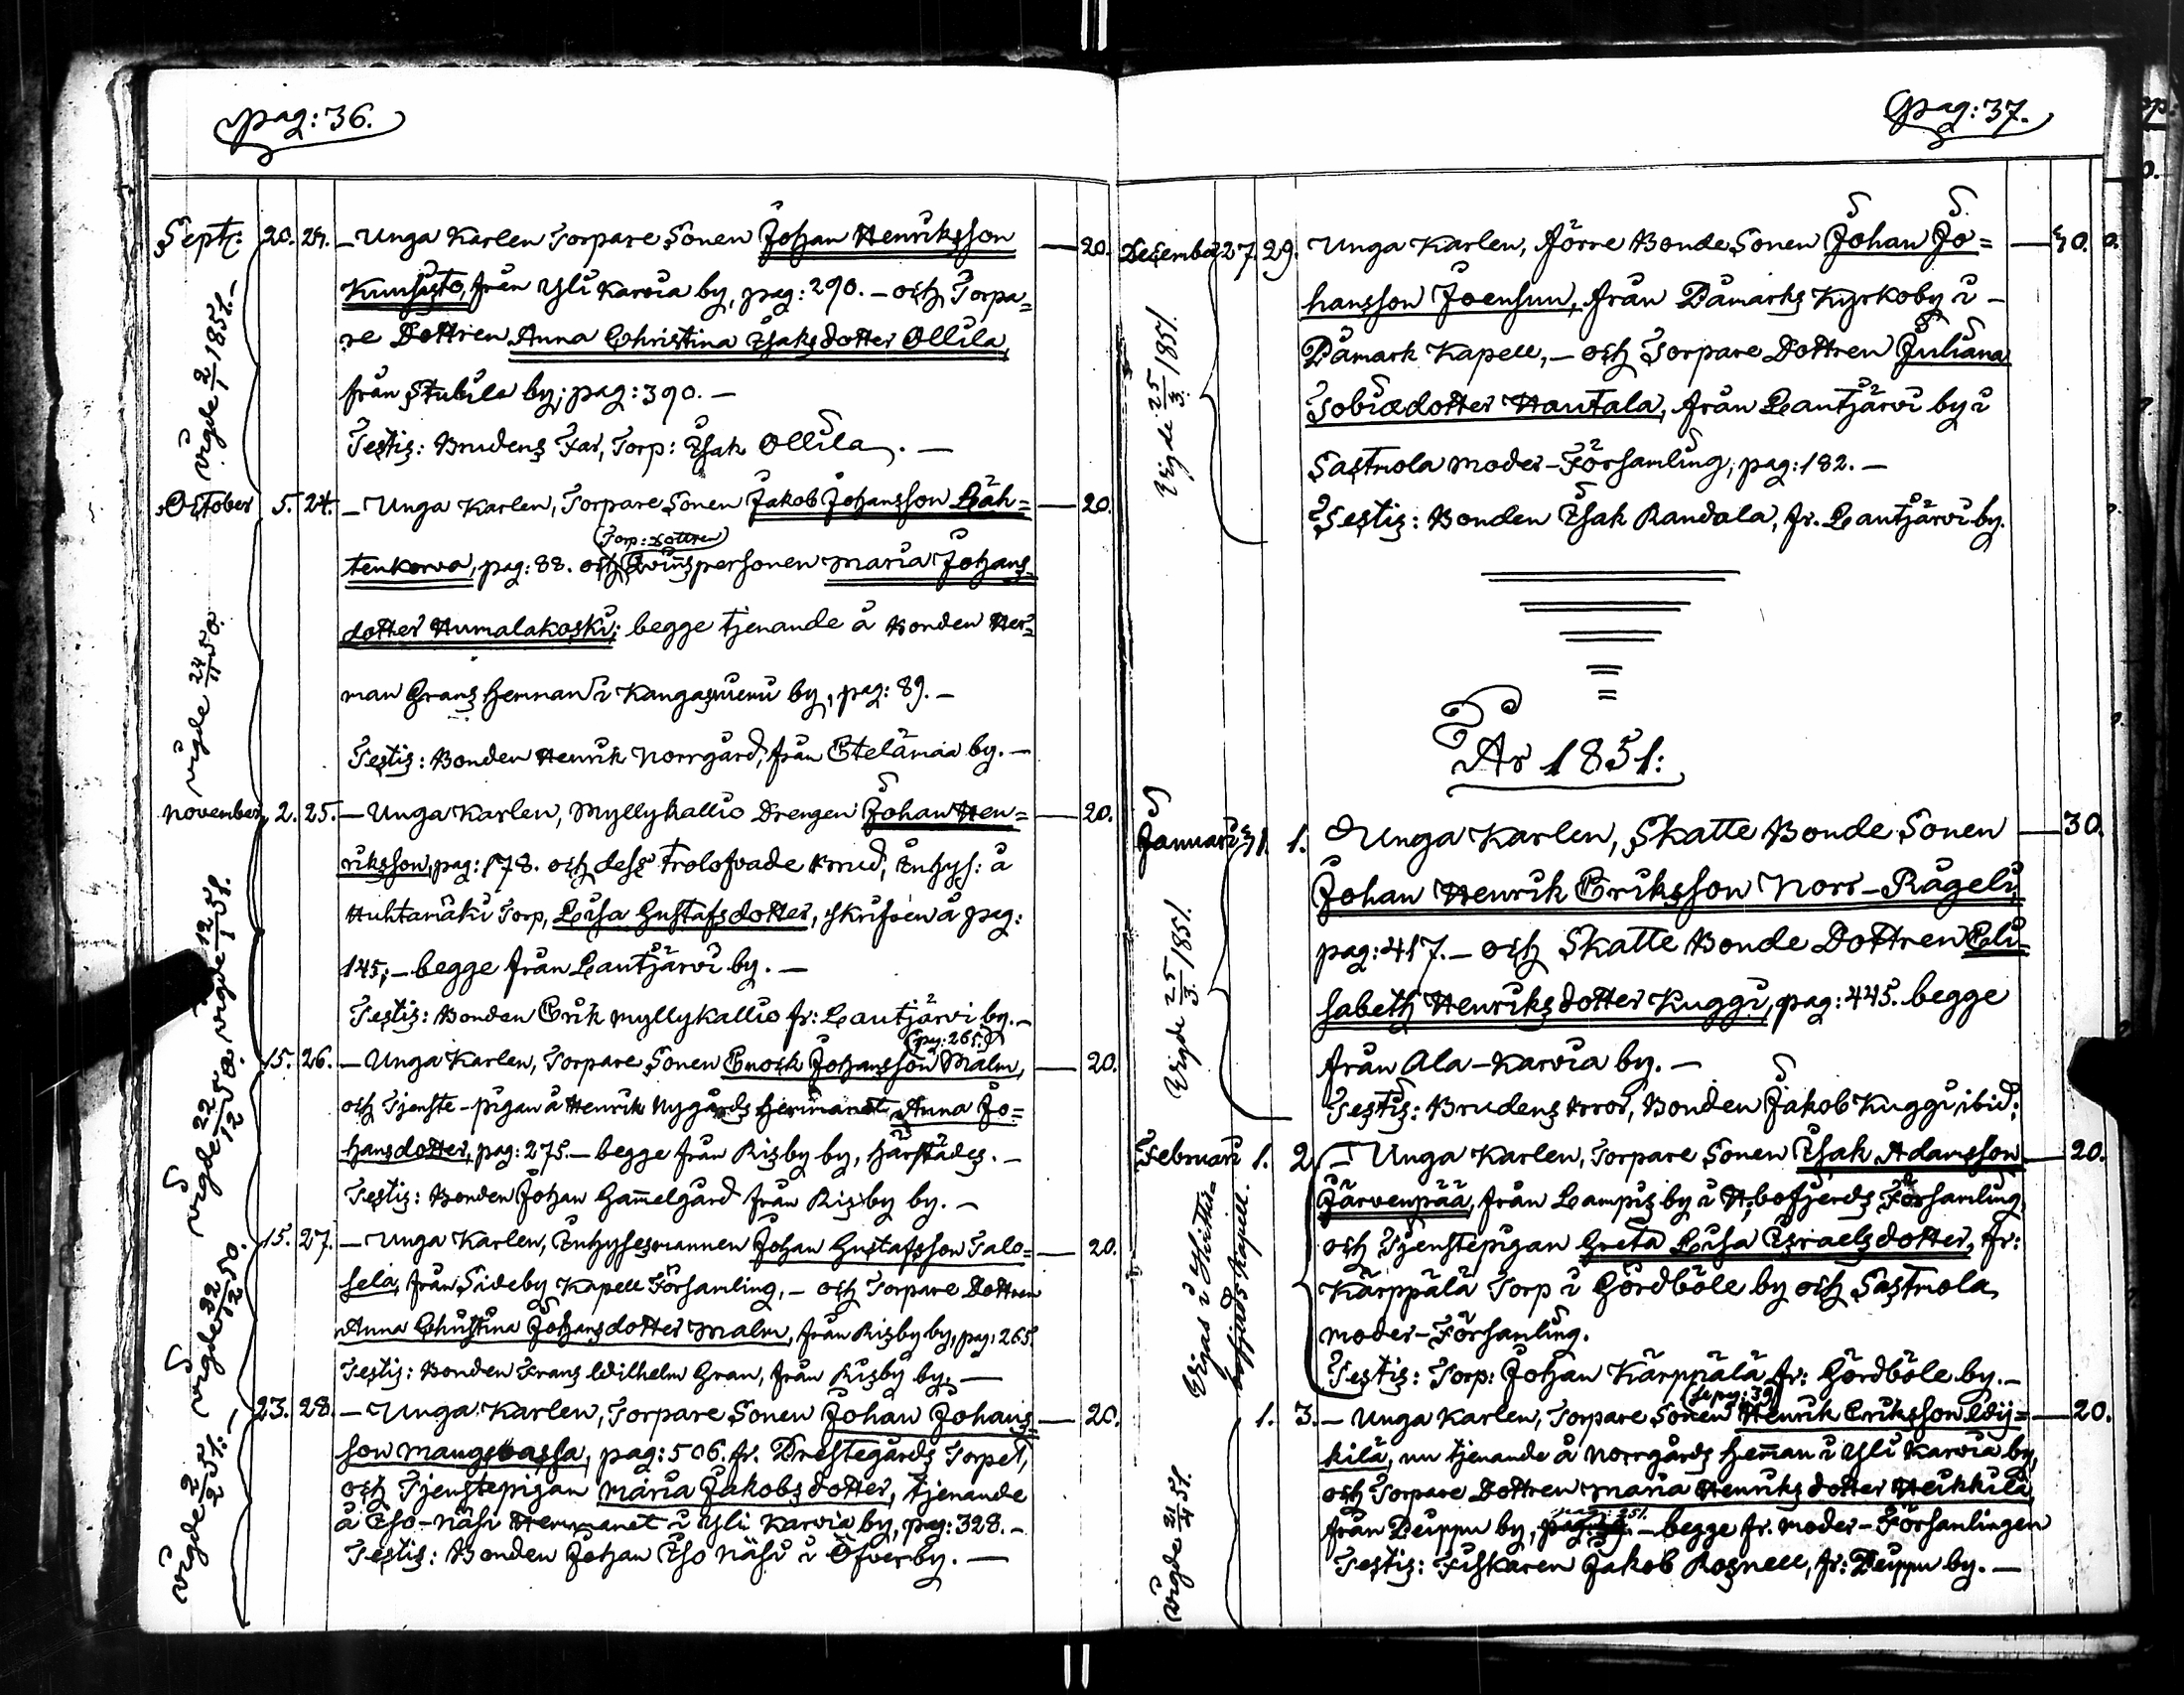 pag: 36.
Sept: 20. 24. — Unga Karlen Torpare Sonen Johan Henriksson — 20.
Kunsisto, från Yli Karvia by, pag: 290. — och Torpa=
re Dottren Anna Christina Isaksdotter Ollila,
från Stubila by; pag: 390. —
Testis: Brudens Far, Torp: Isak Ollila. —
vigde 2/1 1851. —
October 5. 24. — Unga Karlen, Torpare Sonen Jakob Johansson Läh= — 20.
(Torp: dottren)
tenkorva, pag: 88. och Qvinspersonen Maria Johans=
dotter Humalakoski; begge tjenande å Bonden Her=
man Grans Hemman i Kangas by, pag: 89. —
Testis: Bonden Henrik Norrgård, från Etelämaa by. —
vigde 24/11 50.
November 2. 25. — Unga Karlen, Myllykallio Drengen Johan Hen= — 20.
riksson, pag: 178. och dess trolofvade Brud, Inhys: å
Huhtamäki Torp, Lisa Gustafsdotter, skrifven å pag:
145; — begge från Lautjärvi by. —
Testis: Bonden Erik Myllykallio fr: Lautjärvi by. —
vigde 12/1 51.
(pag: 265.)
15. 26. — Unga Karlen, Torpare Sonen Enock Johansson Malm, — 20.
och Tjenste-pigan å Henrik Nygårds Hemmanet Anna Jo=
hansdotter, pag: 275. — begge från Risby by, härstädes. —
Testis: Bonden Johan Gammelgård från Risby by. —
vigde 22/12 50.
15. 27. — Unga Karlen, Inhysesmannen Johan Gustafsson Talo= — 20.
sela, från Sideby Kapell Församling, — och Torpare Dottren
Anna Christina Johansdotter Malm, från Risby by, pag: 265.
Testis: Bonden Frans Wilhelm Gran, från Risby by. —
vigde 22/12 50.
23. 28. — Unga Karlen, Torpare Sonen Johan Johans= — 20.
son Mangsbassa, pag: 506. fr. Prestegårds Torpet,
och Tjenstepigan Maria Jakobsdotter, tjenande
å Iso-Näsi Hemmanet i Yli Karvia by, pag: 328. —
Testis: Bonden Johan Iso Näsi i Öfverby. —
vigde 2/2 51. —
pag: 37.
December 27. 29. Unga Karlen, förre Bonde Sonen Johan Jo= — 30.
hansson Joensuu, från Påmarks Kyrkoby i —
Påmark Kapell, — och Torpare Dottren Juliana
Tobiædotter Hautala, från Lautjärvi by i
Sastmola Moder-Församling, pag: 182. —
Testis: Bonden Isak Randala, fr. Lautjärvi by.
Vigde 25/3 1851.
År 1851:
Januari 31. 1. Unga Karlen, Skatte Bonde Sonen — 30.
Johan Henrik Eriksson Norr-Rågeli,
pag: 417. — och Skatte Bonde Dottren Eli=
sabeth Henriksdotter Kuggi, pag: 445. begge
från Ala-Karvia by. —
Testis: Brudens Bror, Bonden Jakob Kuggi ibid:
Vigde 25/3. 1851.
Februari 1. 2. — Unga Karlen, Torpare Sonen Isak Adamsson — 20.
Järvenpää, från Lampis by i Hvbofjerds Församling
och Tjenstepigan Greta Lisa Israelsdotter, fr:
Kärppälä Torp i Gördböle by och Sastmola
moder-Församling.
Testis: Torp: Johan Kärppälä fr: Gördböle by. —
Vigas i Hvittis=
bofjärds Kapell.
(se pag: 39)
1. 3. — Unga Karlen, Torpare Sonen Henrik Eriksson Wij= — 20.
kilä, nu tjenande å Norrgårds Hemman i Yli Karvia by,
och Torpare Dottren Maria Henriksdotter Heikkilä,
från Peippu by, — begge fr. moder-Församlingen
Testis: Fiskaren Jakob Rosnell, fr: Peippu by. —
vigde 21/4 51.